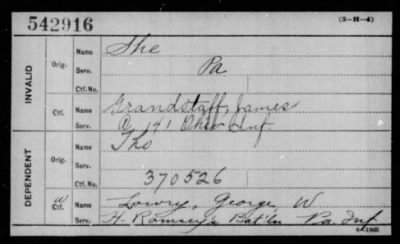 542916 (3-H-4)
INVALID
Orig. Name She
Serv. Pa
Ctf. No.
Ctf. Name Grandstaff, James
Serv. 141 Ohio Inf
DEPENDENT
Orig. Name Tho
Serv.
Ctf. No. 370526
Ctf. Name Lowry, George W
Serv. Bat'ln Pa Inf